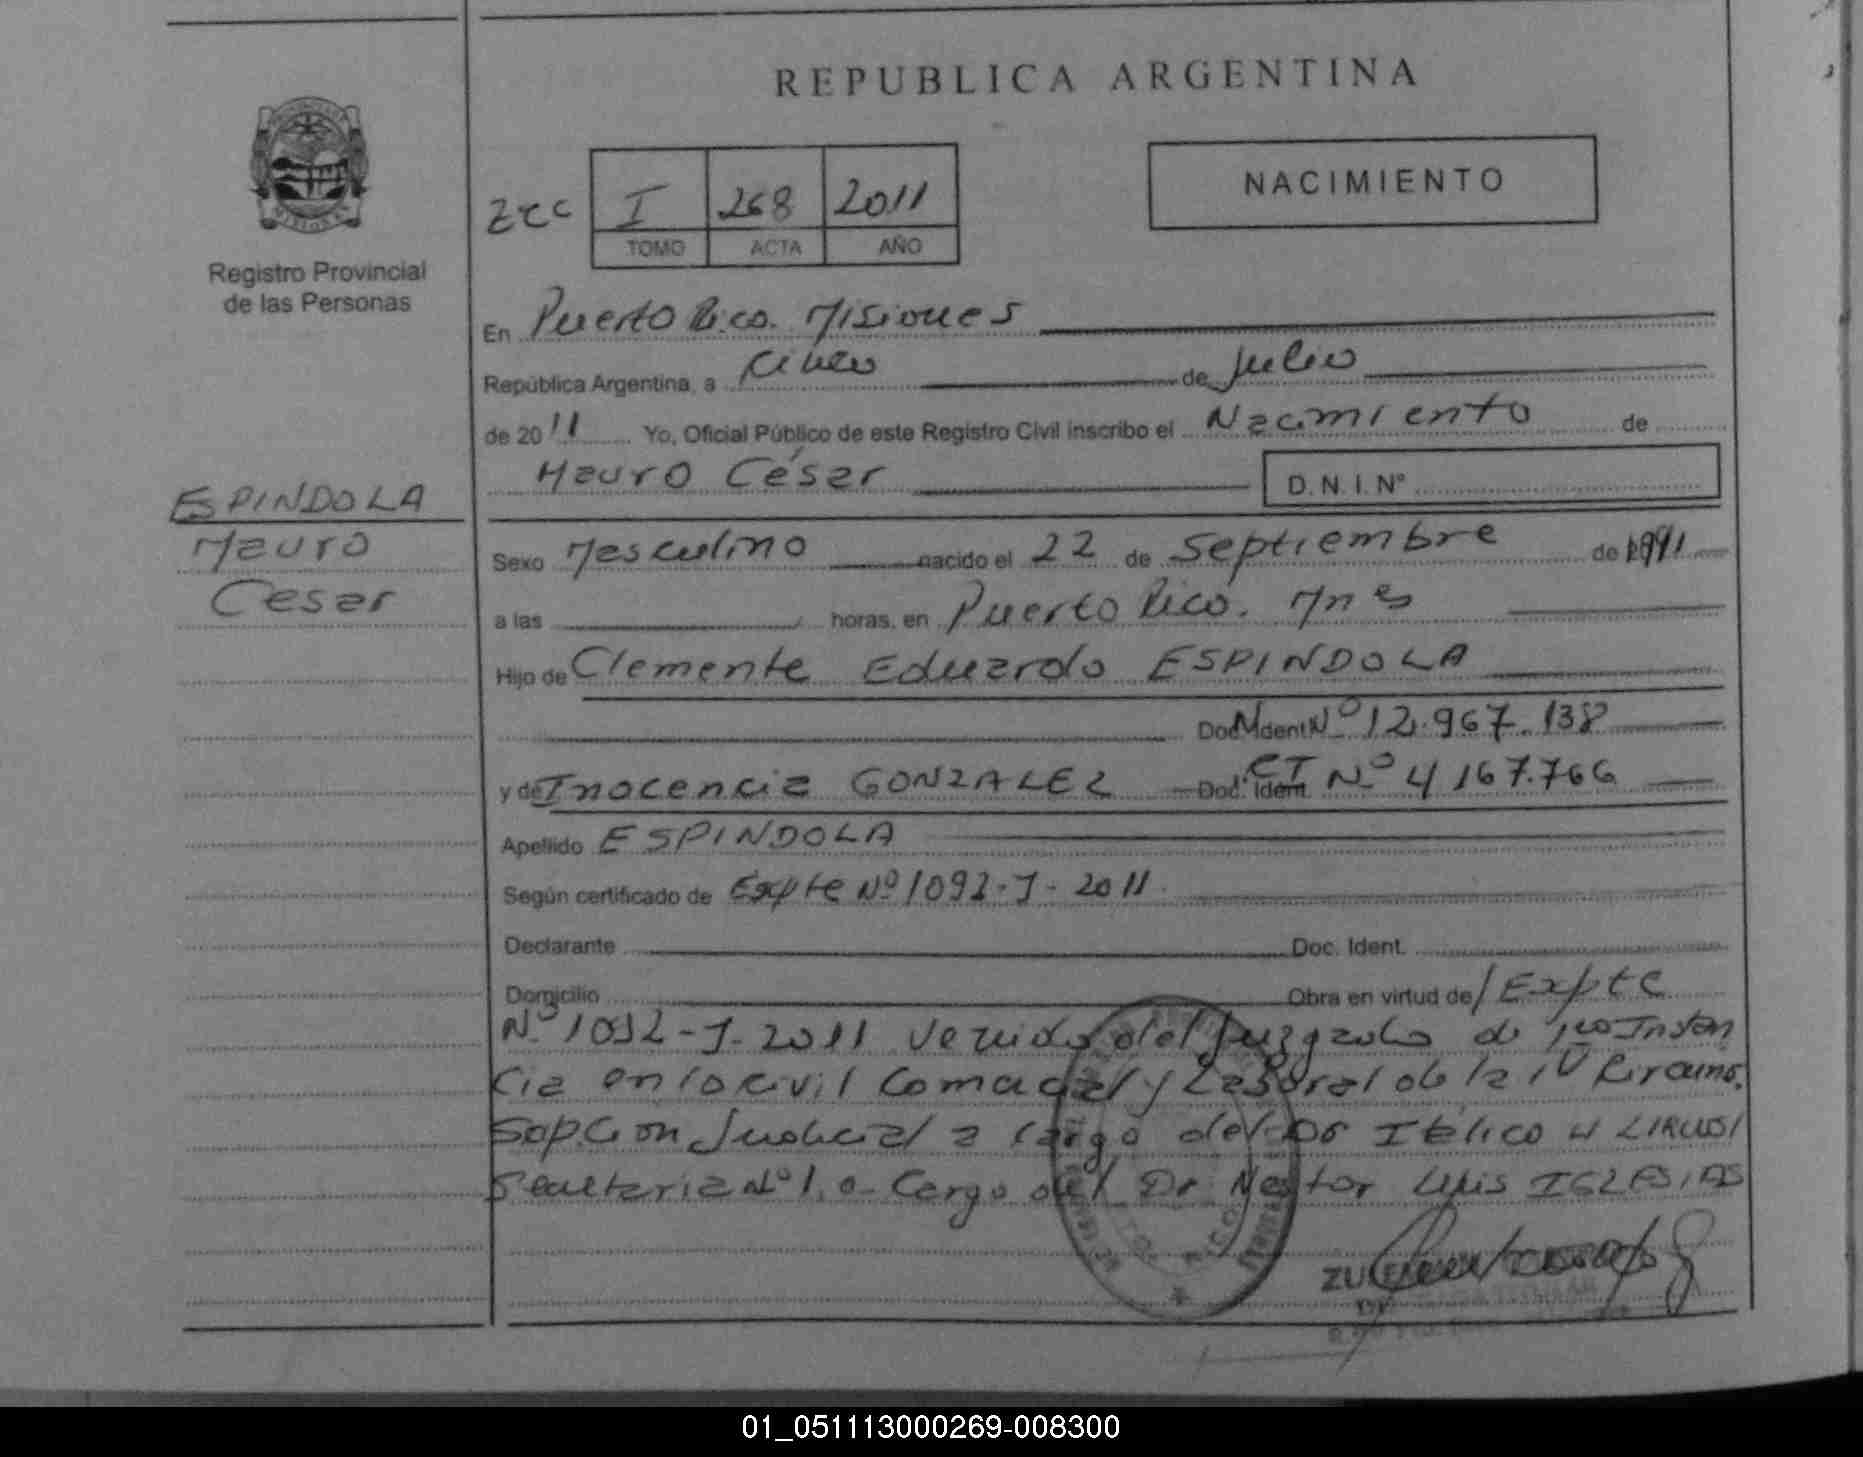 REPUBLICA ARGENTINA
NACIMIENTO
I 268 2011
TOMO ACTA AÑO
Registro Provincial
de las Personas
En Puerto Rico. Misiones
República Argentina, a cinco de Julio
de 2011 Yo, Oficial Público de este Registro Civil inscribo el Nacimiento de
Mauro César D.N.I.Nº
ESPINDOLA
Mauro
Cesar
Sexo Masculino nacido el 22 de Septiembre de 1991
a las horas, en Puerto Rico. Mnes
Hijo de Clemente Eduardo ESPINDOLA
Doc. Ident. M Nº 12.967.138
y de Inocencia GONZALEZ Doc. Ident. CI Nº 4167.766
Apellido ESPINDOLA
Según certificado de Expte Nº 1092-J-2011.
Declarante Doc. Ident.
Domicilio Obra en virtud de/Expte
Nº 1092-J-2011 venido del Juzgado de 1ra Instan
cia en lo civil Comercial y Laboral de la IV Circuns.
Judicial a cargo del Dr
Secretaria Nº 1. a Cargo del Dr Nestor Luis IGLESIAS
01_051113000269-008300